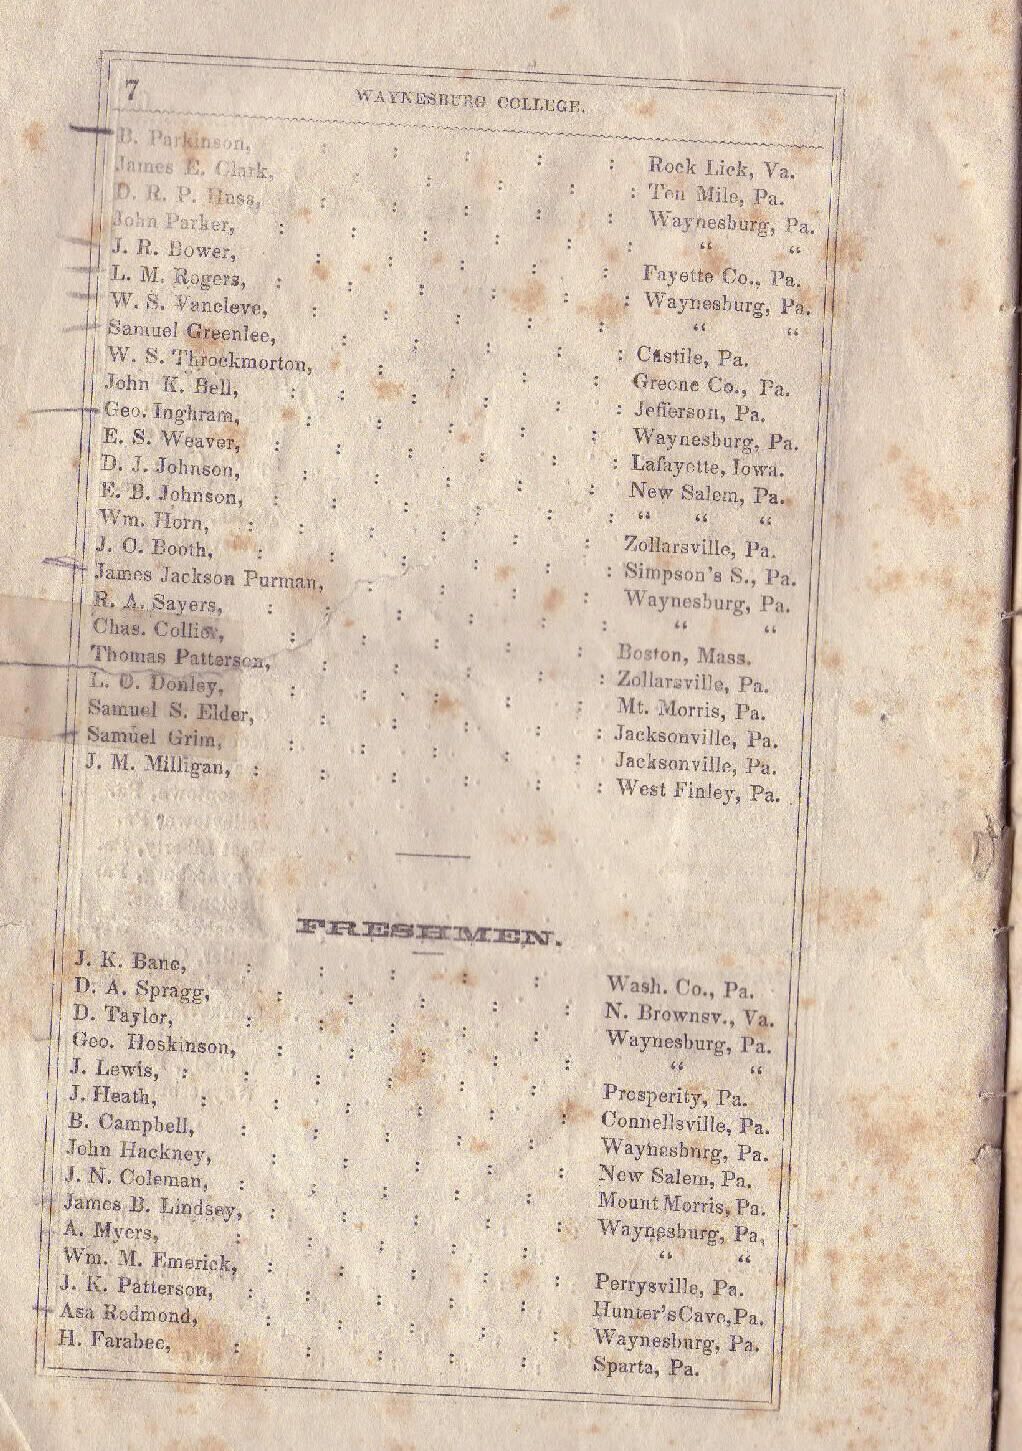 7 WAYNESBURG COLLEGE.
B. Parkinson, : : : : : Rock Lick, Va.
James E. Clark, : : : : : Ten Mile, Pa.
D. R. P. Huss, : : : : : Waynesburg, Pa.
John Parker, : : : : : : “ “
J. R. Bower, : : : : : Fayette Co., Pa.
L. M. Rogers, : : : : : : Waynesburg, Pa.
W. S. Vancleve, : : : : : “ “
Samuel Greenlee, : : : : : Castile, Pa.
W. S. Throckmorton, : : : : Greene Co., Pa.
John K. Bell, : : : : : : Jefferson, Pa.
Geo. Inghram, : : : : : Waynesburg, Pa.
E. S. Weaver, : : : : : : Lafayette, Iowa.
D. J. Johnson, : : : : : New Salem, Pa.
E. B. Johnson, : : : : : : “ “ “
Wm. Horn, : : : : : : Zollarsville, Pa.
J. O. Booth, : : : : : : Simpson's S., Pa.
James Jackson Purman, : : : : Waynesburg, Pa.
R. A. Sayers, : : : : : : “ “
Chas. Collier, : : : : : Boston, Mass.
Thomas Patterson, : : : : : Zollarsville, Pa.
L. O. Donley, : : : : : Mt. Morris, Pa.
Samuel S. Elder, : : : : : Jacksonville, Pa.
Samuel Grim, : : : : : Jacksonville, Pa.
J. M. Milligan, : : : : : : West Finley, Pa.
FRESHMEN.
J. K. Bane, : : : : : Wash. Co., Pa.
D. A. Spragg, : : : : : N. Brownsv., Va.
D. Taylor, : : : : : Waynesburg, Pa.
Geo. Hoskinson, : : : : : “ “
J. Lewis, : : : : : : Prosperity, Pa.
J. Heath, : : : : : : Connellsville, Pa.
B. Campbell, : : : : : Waynesburg, Pa.
John Hackney, : : : : : New Salem, Pa.
J. N. Coleman, : : : : : Mount Morris, Pa.
James B. Lindsey, : : : : : Waynesburg, Pa,
A. Myers, : : : : : “ “
Wm. M. Emerick, : : : : : Perrysville, Pa.
J. K. Patterson, : : : : : Hunter's Cave, Pa.
Asa Redmond, : : : : : Waynesburg, Pa.
H. Farabee, : : : : : Sparta, Pa.